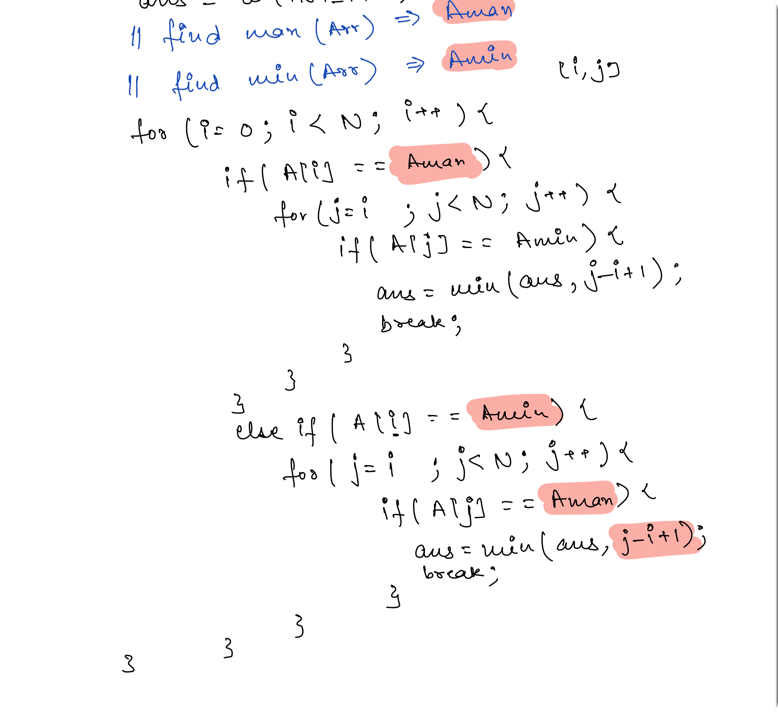 ans =
|| find max (Arr) => Amax
|| find min (Arr) => Amin [i, j]
for (i = 0; i < N; i++) {
if( A[i] == Amax) {
for (j=i ; j < N; j++) {
if( A[j] == Amin) {
ans = min(ans, j-i+1);
break;
}
}
}
else if( A[i] == Amin) {
for( j=i ; j<N; j++) {
if( A[j] == Amax) {
ans = min(ans, j-i+1);
break;
}
}
}
}